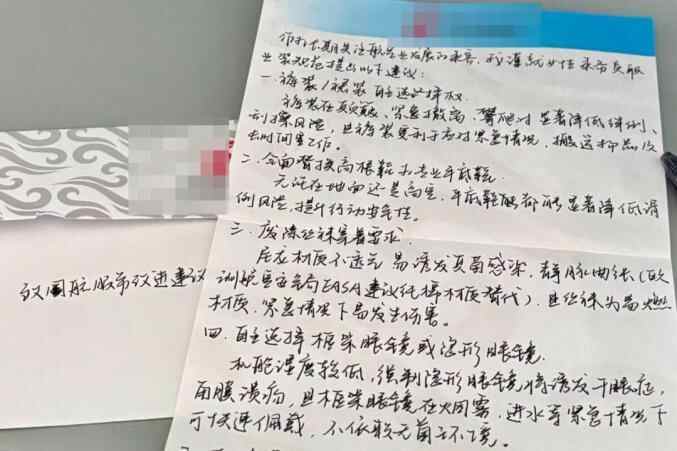 作为长期关注航空业发展的乘客，我谨就女性乘务员职
业装规范提出以下建议：
一.裤装/裙装自主选择权.
裤装在颠簸、紧急撤离、攀爬时显著降低绊倒、
刮擦风险，且裤装更利于应对紧急情况，搬运物品及
长时间工作。
二.全面替换高根鞋为专业平底鞋.
无论在地面还是高空，平底鞋都能显著降低滑
倒风险，提升行动安全性。
三.废除丝袜穿着要求.
尼龙材质不透气易诱发真菌感染，静脉曲张(欧
洲航空安全局EASA建议纯棉材质替代)，且丝袜为易燃
材质，紧急情况下易发生伤害。
四.自主选择框架眼镜或隐形眼镜.
机舱湿度较低，强制隐形眼镜将诱发干眼症，
角膜溃疡，且框架眼镜在烟雾，进水等紧急情况下
可快速佩戴，不依赖无菌环境。
致国航服饰改进建议